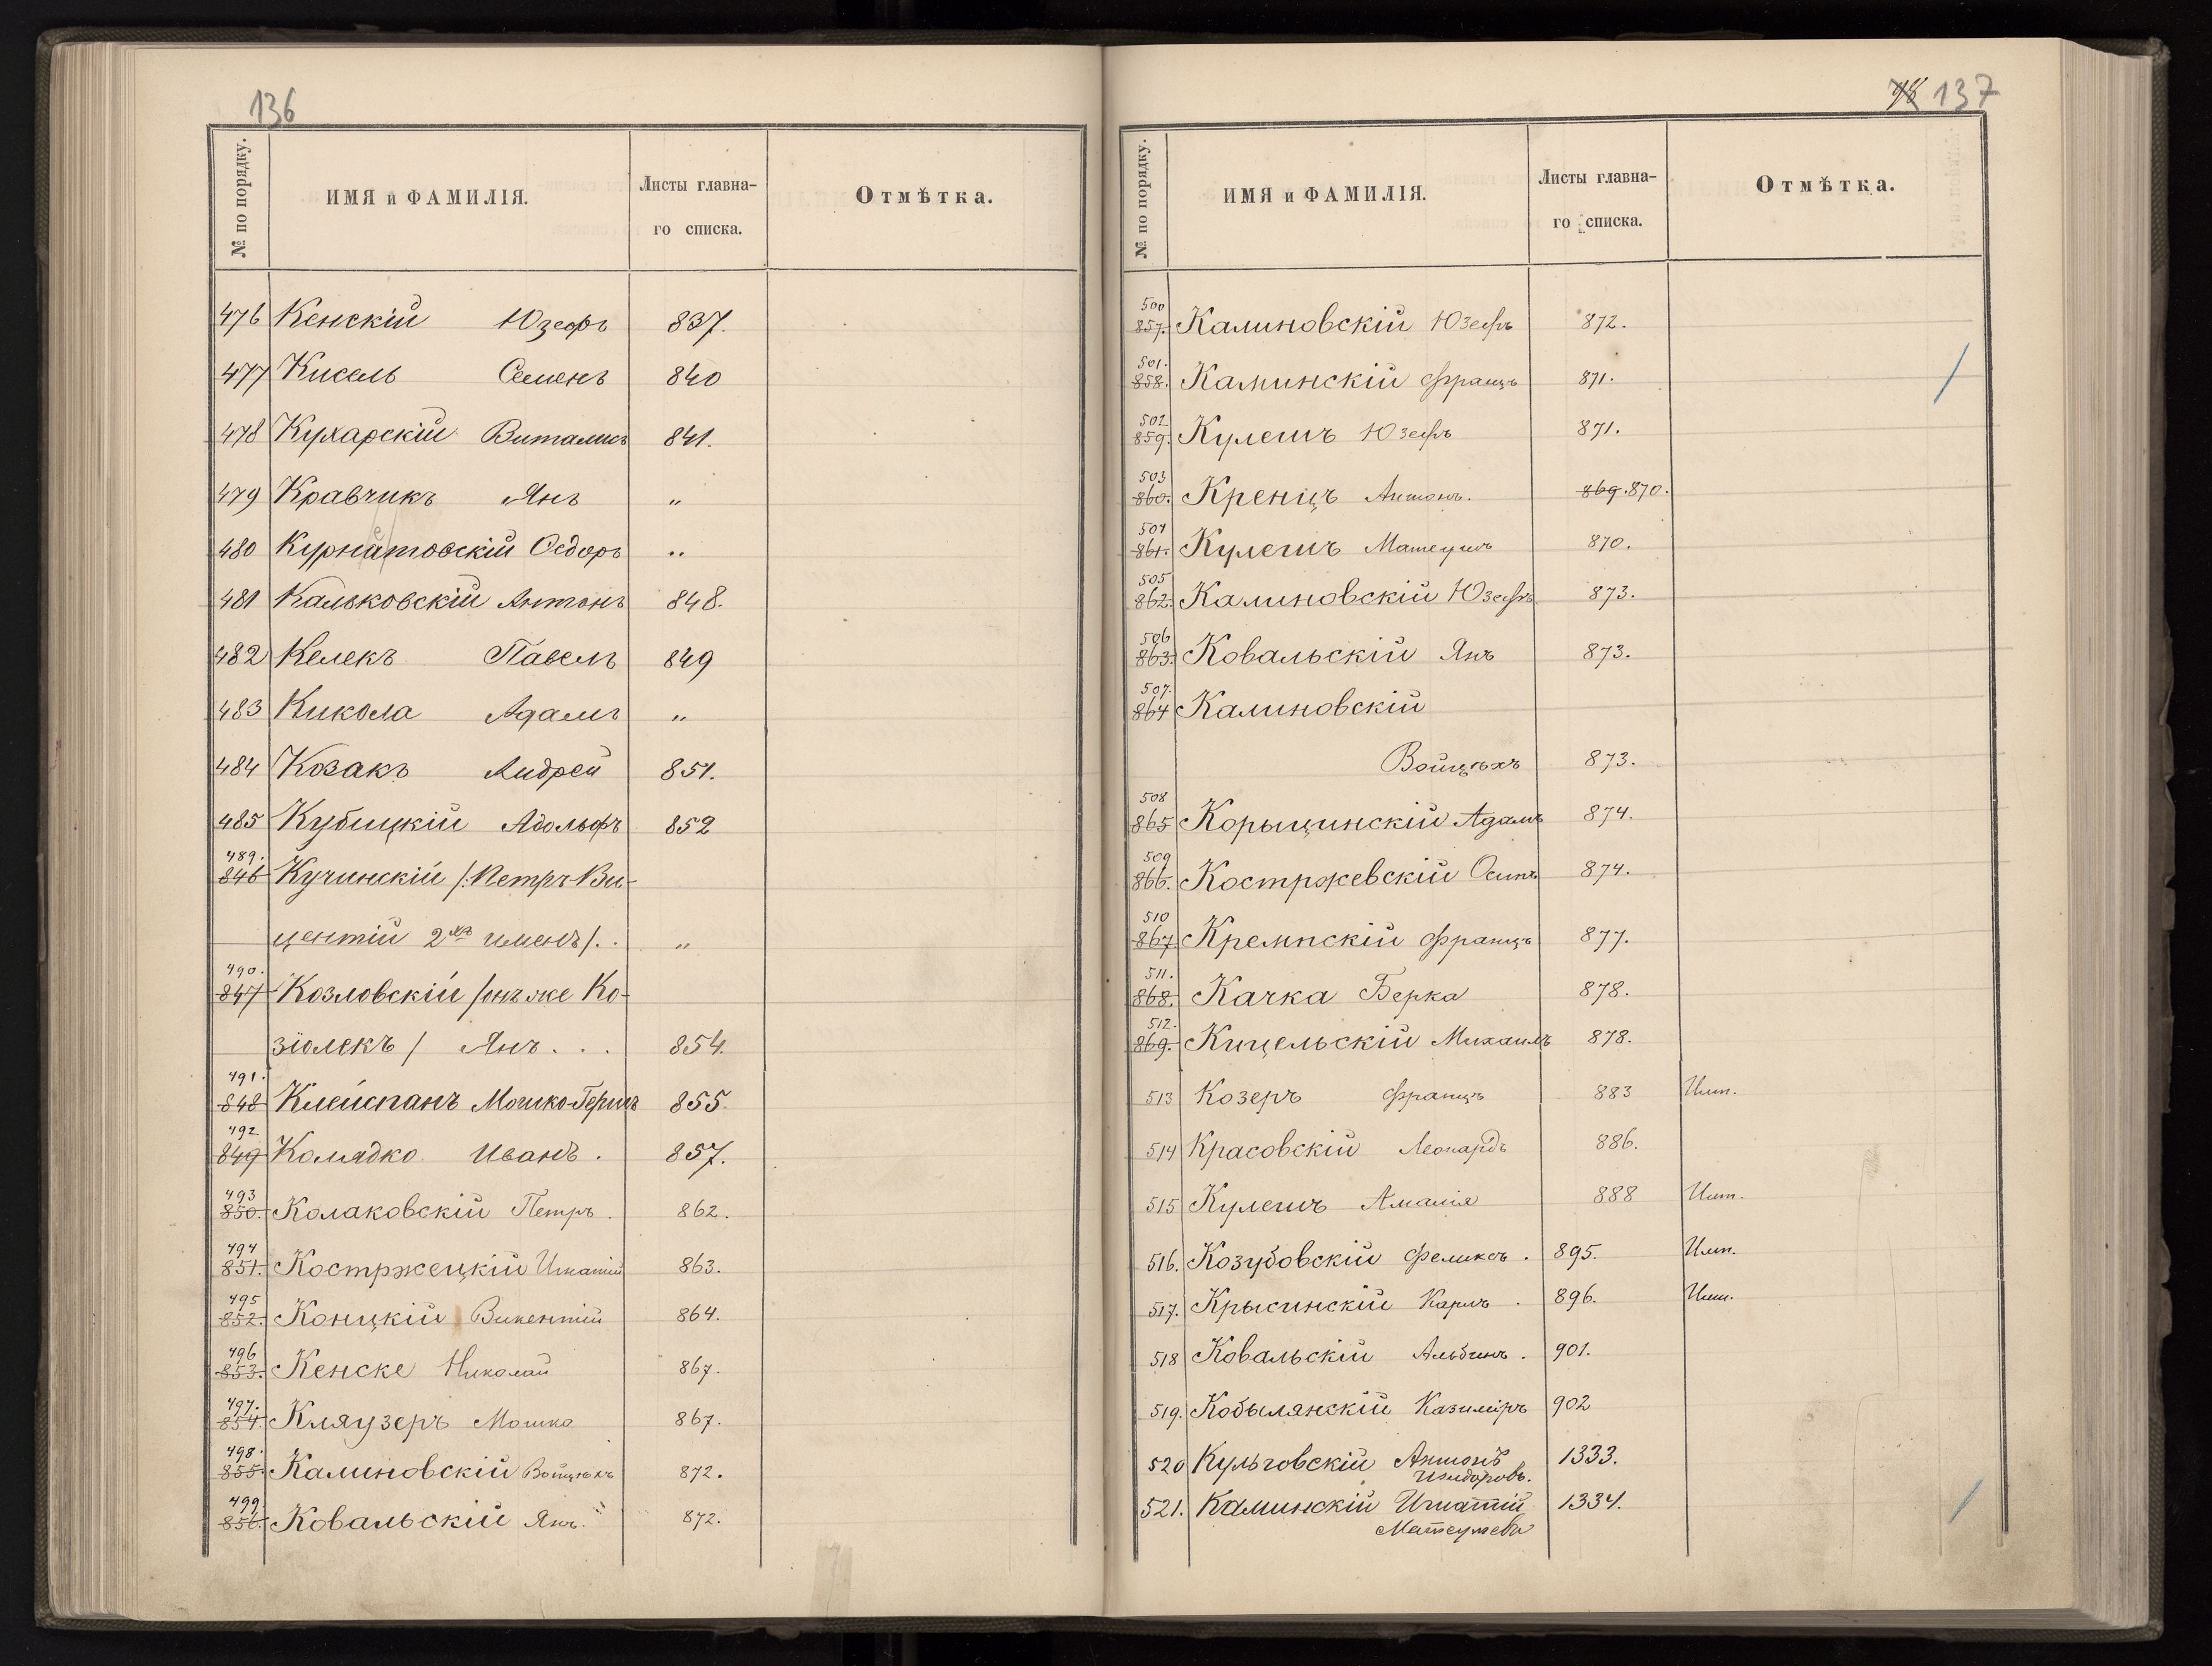 136
№ по порядку.
ИМЯ и ФАМИЛІЯ.
Листы главна-
го списка.
Отмѣтка.
476 Кенскій Юзефъ 837.
477 Кисель Семенъ 840
478 Кухарскій Виталисъ 841.
479 Кравчикъ Янъ „
480 Курнатовскій Ѳедоръ „
481 Кальковскій Антонъ 848.
482 Келекъ Павелъ 849
483 Кикола Адамъ „
484 Козакъ Андрей 851.
485 Кубицкій Адольфъ 852
489.
846 Кучинскій /: Петръ Ви-
центій 2хъ именъ/. . „
490.
847 Козловскій /онъ же Ко-
зіолекъ/ Янъ . . . 854.
491.
848 Клейспанъ Мошко-Гершъ 855.
492.
849 Колядко Иванъ . 857.
493
850. Колаковскій Петръ . 862.
494
851. Костржецкій Игнатій 863.
495
852. Коницкій Викентій 864.
496
853. Кенске Николай 867.
497.
854. Кляузеръ Мошко 867.
498.
855. Калиновскій Войцѣхъ 872.
499.
856. Ковальскій Янъ. 872.
98 137
№ по порядку.
ИМЯ и ФАМИЛІЯ.
Листы главна-
го списка.
Отмѣтка.
500
857. Калиновскій Юзефъ 872.
501.
858. Каминскій Францъ 871.
502
859. Кулешъ Юзефъ 871.
503
860. Кренцъ Антонъ. 869. 870.
504
861. Кулешъ Матеушъ 870.
505
862. Калиновскій Юзефъ 873.
506
863. Ковальскій Янъ 873.
507.
864 Калиновскій
Войцѣхъ 873.
508
865 Корыцинскій Адамъ 874.
509
866. Костржевскій Осипъ 874.
510
867 Кремпскій Францъ 877.
511.
868. Качка Берка 878.
512.
869. Кицельскій Михаилъ 878.
513 Козеръ Францъ 883 Имп.
514 Красовскій Леонардъ 886.
515 Кулешъ Амалія 888 Имп.
516. Козубовскій Феликсъ . 895. Имп.
517. Крысинскій Карлъ . 896. Имп.
518 Ковальскій Альбинъ . 901.
519. Кобылянскій Казиміръ 902
520 Кульговскій Антонъ 1333.
Исидоровъ.
521. Каминскій Игнатій 1334.
Матеушевъ